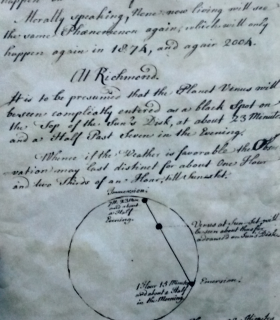 Morally speaking, None now living will see
the same Phænomenon again, which will only
happen again in 1874, and again 2004.
At Richmond.
It is to be presumed that the Planet Venus will
be seen compleatly entered as a black Spot on
the Top of the Sun's Disk, at about 23 Minutes
and a Half Past Seven in the Evening.
Whence if the Weather is favorable the
vation may last distinct for about One Hour
and two Thirds of an Hour, till Sunset.
Immersion:
and about
a Half
Evening.
Venus at Sun-Set will
be seen about thus far
advanced on Sun's Disk.
Emersion.
1 Hour 13 Minutes
and about a Half
in the Morning.